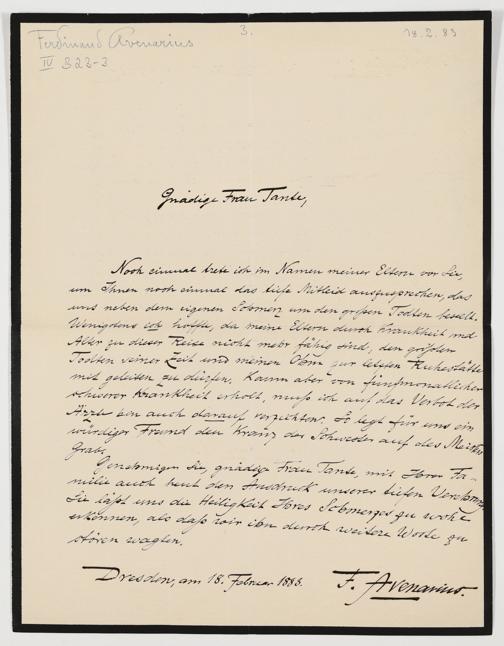 Ferdinand Avenarius
3.
18.2.83
IV 322-3
Gnädige Frau Tante,
Noch einmal trete ich im Namen meiner Eltern vor Sie,
um Ihnen noch einmal das tiefe Mitleid auszusprechen, das
uns neben dem eigenen Schmerz um den großen Todten beseelt.
Wenigstens ich hoffte, da meine Eltern durch Krankheit und
Alter zu dieser Reise nicht mehr fähig sind, den größten
Todten seiner Zeit und meinen Ohm zur letzten Ruhestätte
mit geleiten zu dürfen. Kaum aber von fünfmonatlicher
schwerer Krankheit erholt, muß ich auf das Verbot der
Ärzte hin auch darauf verzichten. So legt für uns ein
würdiger Freund den Kranz der Schwester auf des Meisters
Grab.
Genehmigen Sie, gnädige Frau Tante, mit Ihrer Fa-
milie auch heut den Ausdruck unserer tiefen Verehrung.
Sie läßt uns die Heiligkeit Ihres Schmerzes zu wohl
erkennen, als daß wir ihn durch weitere Worte zu
stören wagten.
Dresden, am 18. Februar 1883.
F. Avenarius.